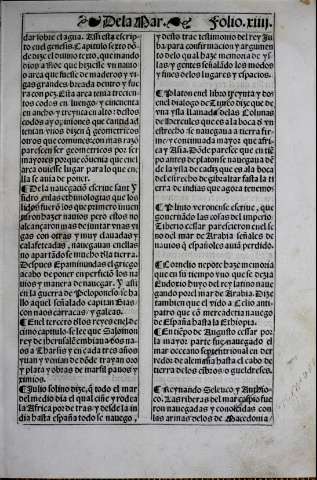 De la Mar. Folio. xiiij.
dar sobre el agua. Assi esta escrip
to en el genesis. Capitulo sexto dõ
de dize el divino texto, que mando
dios a Noe que hiziesse vn nauio
o arca que fuesse de maderos y vi
gas grandes breada dentro y fue
ra con pez. Esta arca tenia trezien
tos codos en luengo: y cincuenta
en ancho: y treynta en alto: destos
codos ay opiniones que cantidad
tenian vnos dizen q̃ geometricos
otros que comunes: con mas razõ
parescen ser geometricos por ser
mayores porque cõuenia que en el
arca ouiesse lugar para lo que en
lla se auia de poner.
¶ De la nauegació escriue sant Y
sidro en las ethimologias que los
lidos fuerõ los que primero inuen
taron hazer nauios pero estos no
alcançaron mas de juntar vnas vi
gas con otras y muy clauadas y
calafeteadas, nauegauan en ellas
no apartãdose mucho dela tierra.
Despues Epaminundas el griego
acabo de poner en perfició los na
uios y manera de nauegar. Y assi
en la guerra de Peloponenso se ha
llo aquel señalado capitan Bias
con naos carracas: y galeras.
¶ En el tercero de los reyes en el de
cimo capitulo se lee que Salomon
rey de iherusalẽ embiaua sus na
uios a Tharsis y en cada tres años
yuan y veniã de dõde trayan oro
y plata y obras de marfil pauos y
ximios.
¶ Julio solino dize, q̃ todo el mar
del medio dia el qual ciñe y rodea
la Africa por de tras: y desde la in
dia hasta españa todo se nauego,
y desto trae testimonio del rey Ju
ba: para confirmacion y argumen
to delo qual haze memoria de ys
las y gentes señalãdo los modos
y fines delos lugares y espacios.
¶ Platon en el libro treynta y dos
en el dialogo de Timeo dize que de
vna ysla llamada de las Colunas
de Hercules que es a la boca d vn
estrecho se nauegaua a tierra fir
me: y continuada mayor que afri
ca y Asia. Dõde paresce que en tiẽ
po antes de platon se nauegaua dẽ
de la ysla de cadiz que es ala boca
del estrecho de gibraltar fasta la ti
erra de indias que agora tenemos
¶ Plinio veronense escriue, que
gouernãdo las cosas del imperio
Tiberio cesar parescieron en el se
no del mar de Arabia señales de
nauios q̃ españoles auiã perdido.
¶ Cornelio nepote haze memoria
que en su tiempo vno que se dezia
Eudoxio huyo del rey latiro naue
gando por el mar de Arabia. Dize
tambien que el vido a Celio anti
patro que cõ mercaderia nauego
de España hasta la Ethiopia.
¶ En tiẽpo de Augusto cesar por
la mayor parte fue nauegado el
mar occeano septentrional en der
redor de alemaña hasta el cabo de
tierra delos cibros o gueldreses.
¶ Reynando Seleuco y Anthio
co. Las riberas del mar caspio fue
ron nauegadas y conoscidas con
las armas delos de Macedonia